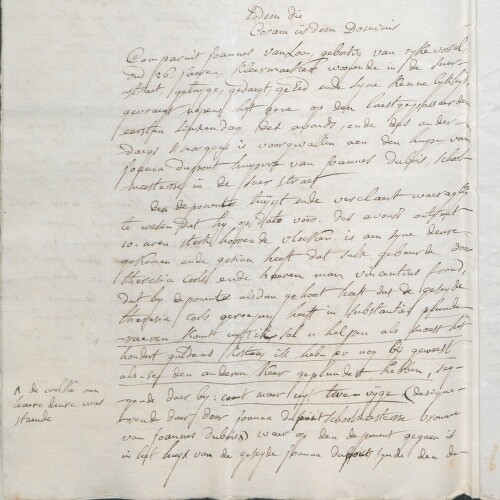 Eodem die
Coram iisdem Dominis
Compariit Joannes Van Loon, geboortig van Ryckevorsel,
oud 26 jaeren, kleermaeker woonende in de
straet, getuyge, gedaegt, geEed ende syne kennelyckheyt
gevraegt nopens het gene op den laestgepasseerden
eersten sinxendag des avonds, ende des ander-
daegs smorgens is voorgevallen aen den huyse van
Joanna Dupont huysvr van Joannes Dubois School-
meesterse in de straet
Den deponent tuygt ende verclaert waeragtig
te wesen dat hy op date voors. des avonds ontrent
10. uren sterk hoorende vloeken, is aen syne deure
gekomen ende gesien heeft dat sulx gebeurde door
theresia Cools ende haeren man Vincentius
dat hy deponent alsdan gehoort heeft dat de geseyde
theresia Cools geroepen heeft in substantie plunde-
raeren komt uyt ik sal u helpen al moest het
hondert guldens kosten, ik heb er nog by geweest
als sy den anderen keer geplundert hebben, seg-
gende daer by: comt maer uyt twee-
rende daer door Joanna dupont schoolmeesterse vrouwe
van Joannes Dubois ^ waer op den deponent gegaen is
in het huys van de geseyde Joanna dupont synde den de-
^ de welke aen
haere deure was
staende